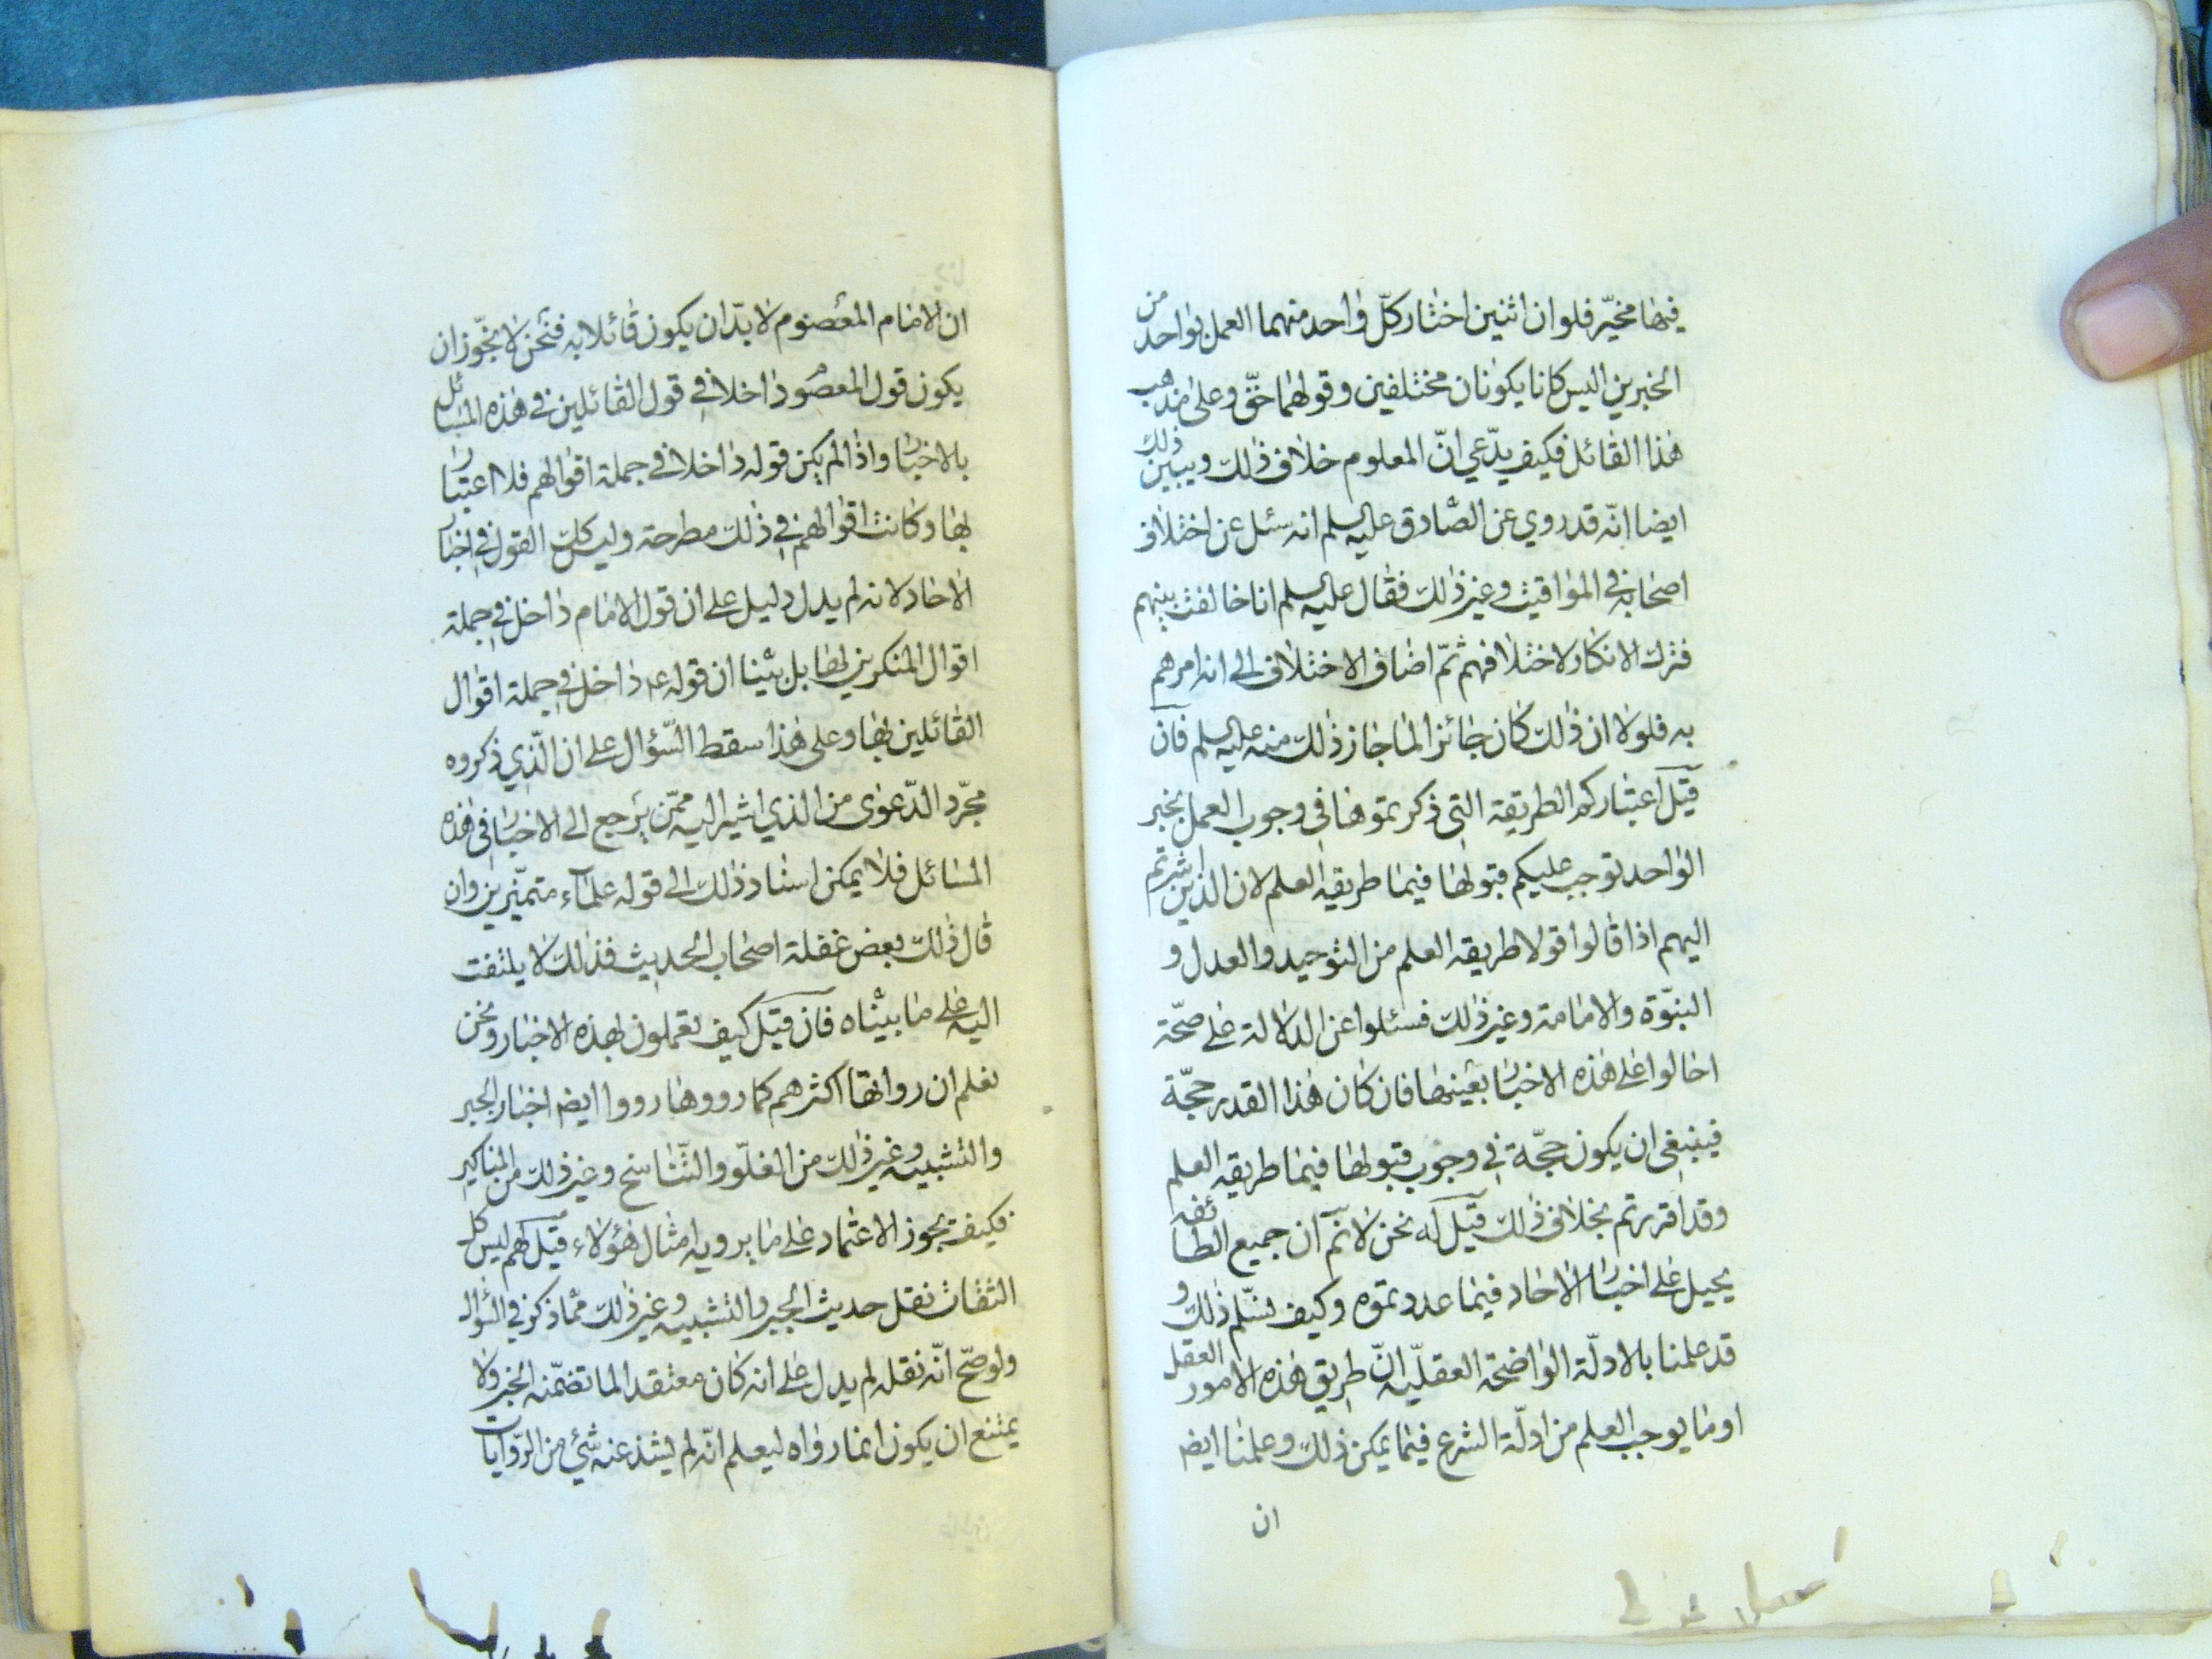 فيها مخيّر فلو ان اثنين اختار كلّ واحد منهما العمل بواحد من
الخبرين اليس كانا يكونان مختلفين وقولهما حقّ وعلى مذهب
هذا القائل فكيف يدّعي انّ المعلوم خلاف ذلك ويبيّن ذلك
ايضا انّه قد روي عن الصّادق عليه السلم انه سئل عن اختلاف
اصحابه في المواقيت وغير ذلك فقال عليه السلم انا خالفت بينهم
فترك الانكار لاختلافهم ثمّ اضاف الاختلاف الى انه امرهم
به فلولا ان ذلك كان جائزا لما جاز ذلك منه عليه السلم فان
قيل اعتباركم الطريقة التي ذكرتموها في وجوب العمل بخبر
الواحد توجب عليكم قبولها فيما طريقه العلم لان الذين اشرتم
اليهم اذا قالوا قولا طريقه العلم من التوحيد والعدل و
النبوّة والامامة وغير ذلك فسئلوا عن الدلالة على صحّة
احالوا على هذه الاخبار بعينها فان كان هذا القدر حجّة
فينبغي ان يكون حجّة في وجوب قبولها فيما طريقه العلم
وقد اقررتم بخلاف ذلك قيل له نحن لا نم ان جميع الطائفه
يحيل على اخبار الاحاد فيما عددتموه وكيف نسلّم ذلك و
قد علمنا بالادلّة الواضحة العقليّه انّ طريق هذه الامور العقل
او ما يوجب العلم من ادلّة الشرع فيما يمكن ذلك وعلمنا ايض
ان
ان الامام المعصوم لا بدّ ان يكون قائلا به فنحن لا نجّوز ان
يكون قول المعصوم داخلا في قول القائلين في هذه المسائل
بالاخبار واذا لم يكن قوله داخلا في جملة اقوالهم فلا اعتبار
بها وكانت اقوالهم في ذلك مطرحة وليس كلك القول في اخبار
الاحاد لانه لم يدل دليل على ان قول الامام داخل في جملة
اقوال المنكرين لها بل بيّنا ان قوله ع داخل في جملة اقوال
القائلين بها وعلى هذا سقط السّؤال على ان الّذي ذكروه
مجرّد الدّعوى من الذي اشير اليه ممّن يرجع الى الاخبار في هذه
المسائل فلا يمكن اسناد ذلك الى قوله علماء متميّزين وان
قال ذلك بعض غفلة اصحاب الحديث فذلك لا يلتفت
اليه على ما بيّناه فان قيل كيف تعملون بهذه الاخبار ونحن
نعلم ان رواتها اكثرهم كما رووها رووا ايض اخبار الجبر
والتشبيه وغير ذلك من الغلّو والتّناسخ وغير ذلك من المناكير
فكيف يجوز الاعتماد على ما يرويه امثال هؤلاء قيل لهم ليس كل
الثقات نقل حديث الجبر والتشبيه وغير ذلك ممّا ذكر في السؤال
ولو صحّ انّه نقله لم يدل على انه كان معتقدا لما تضمّنه الخبر ولا
يمتنع ان يكون انما رواه ليعلم انّه لم يشذ عنه شئ من الرّوايات